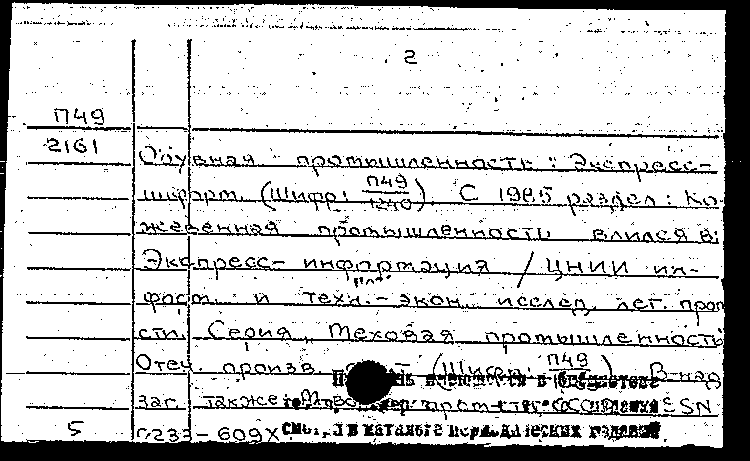 2
П49
2161
Обувная промышленность: Экспресс-
информ. (Шифр: П49/1240). С 1985 раздел: Ко-
жевенная промышленность влился в:
Экспресс-информация / ЦНИИ ин-
форм. и техн.-экон. исслед. лег. пром-
сти. Серия, Меховая промышленность
Отеч. произв. (Шифр: П49 ). В над
заг. также: ISSN
5 0233-609X
имеются в библиотеке
см. в каталоге периодических изданий